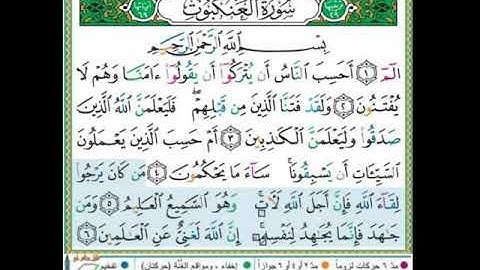 سُورَةُ العَنكَبُوتِ
بِسْمِ ٱللَّهِ ٱلرَّحْمَٰنِ ٱلرَّحِيمِ
الٓمٓ ١ أَحَسِبَ ٱلنَّاسُ أَن يُتْرَكُوٓا۟ أَن يَقُولُوٓا۟ ءَامَنَّا وَهُمْ لَا
يُفْتَنُونَ ٢ وَلَقَدْ فَتَنَّا ٱلَّذِينَ مِن قَبْلِهِمْ ۖ فَلَيَعْلَمَنَّ ٱللَّهُ ٱلَّذِينَ
صَدَقُوا۟ وَلَيَعْلَمَنَّ ٱلْكَٰذِبِينَ ٣ أَمْ حَسِبَ ٱلَّذِينَ يَعْمَلُونَ
ٱلسَّيِّـَٔاتِ أَن يَسْبِقُونَا ۚ سَآءَ مَا يَحْكُمُونَ ٤ مَن كَانَ يَرْجُوا۟
لِقَآءَ ٱللَّهِ فَإِنَّ أَجَلَ ٱللَّهِ لَـَٔاتٍ ۚ وَهُوَ ٱلسَّمِيعُ ٱلْعَلِيمُ ٥ وَمَن
جَٰهَدَ فَإِنَّمَا يُجَٰهِدُ لِنَفْسِهِۦٓ ۚ إِنَّ ٱللَّهَ لَغَنِىٌّ عَنِ ٱلْعَٰلَمِينَ ٦
مدّ ٦ حركات لزوماً مدّ ٢ أو ٤ أو ٦ جوازاً إخفاء، ومواقع الغُنَّة (حركتان) تفخيم